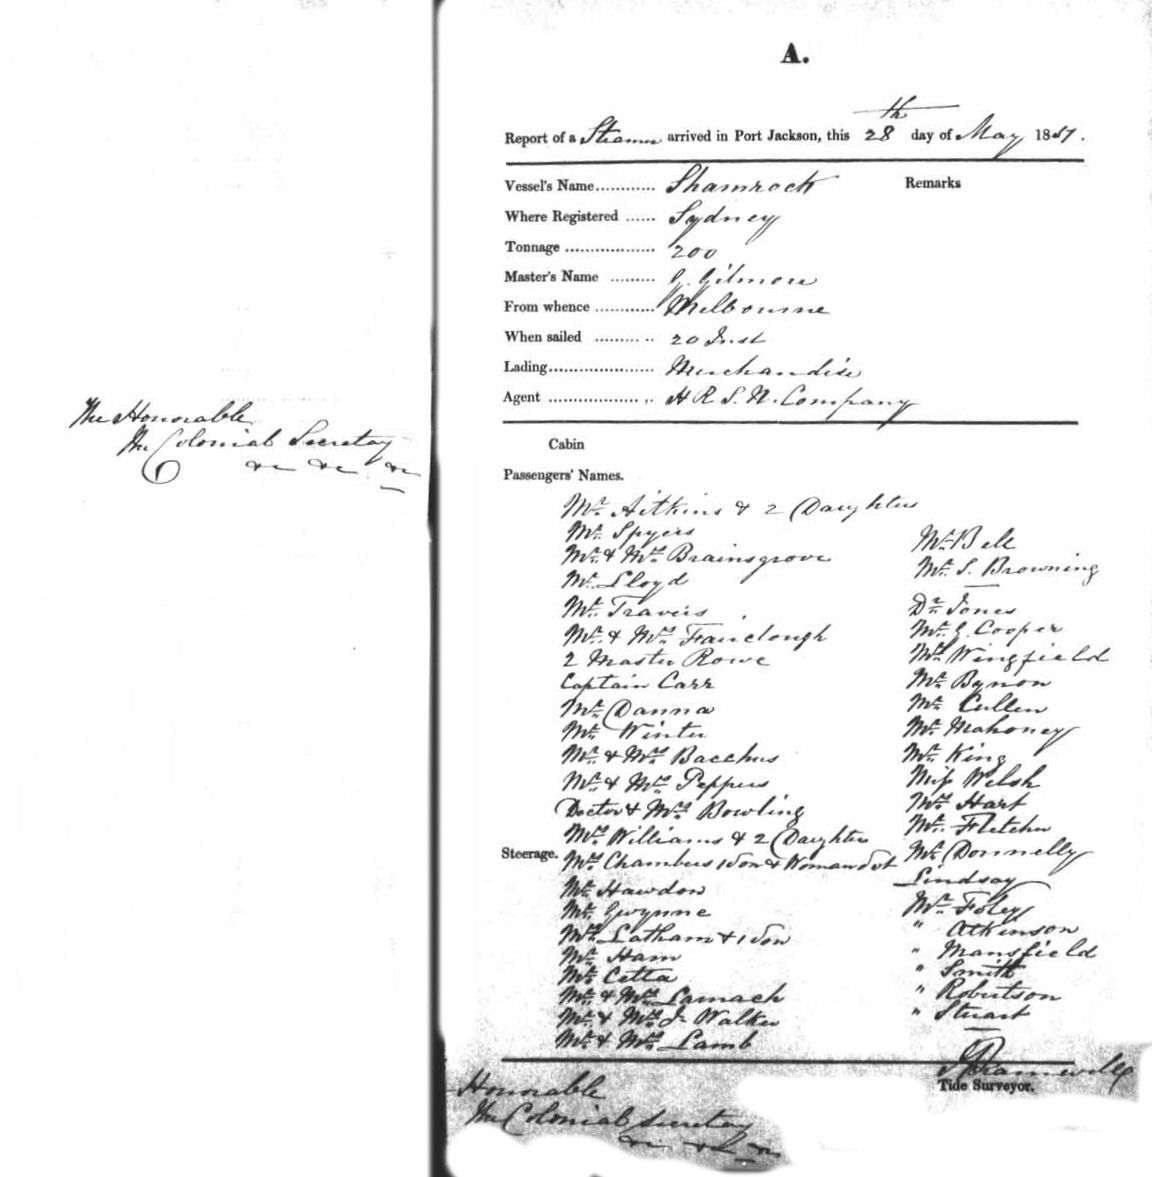 The Honorable
The Colonial Secretary
&c &c &c
A.
Report of a Steamer arrived in Port Jackson, this 28th day of May 1851.
Vessel's Name............ Shamrock
Remarks
Where Registered ...... Sydney
Tonnage .................. 200
Master's Name ......... G. Gilmore
From whence ............ Melbourne
When sailed ......... .. 20 Inst
Lading..................... Merchandise
Agent .................. .. H R S. N. Company
Cabin
Passengers' Names.
Mr. Aitkins & 2 Daughters
Mr. Spyers
Mr. & Mrs. Brainsgrove
Mr. Lloyd
Mr. Travers
Mr. & Mrs. Fairclough
2 Master Rowe
Captain Carr
Mr. Danna
Mr. Winter
Mr. & Mrs. Bacchus
Mr. & Mrs. Peppers
Doctor & Mrs. Bowling
Mrs. Williams & 2 Daughters
Steerage. Mrs. Chambers 1 Son & Woman Svt
Mr. Hawdon
Mr. Gwynne
Mrs. Latham & 1 Son
Mr. Ham
Mr. Cetta
Mr. & Mrs. Lamach
Mr. & Mrs. J. Walker
Mr. & Mrs. Lamb
Mr. Bell
Mr. S. Browning
Dr. Jones
Mr. G. Cooper
Mrs. Wingfield
Mr. Bynon
Mr. Cullen
Mr. Mahoney
Mr. King
Miss Welsh
Mrs. Hart
Mr. Fletcher
Mr. Donnelly
Lindsay
Mr. Foley
" Atkinson
" Mansfield
" Smith
" Robertson
" Stuart
Tide Surveyor.
Honorable
The Colonial Secretary
&c &c &c